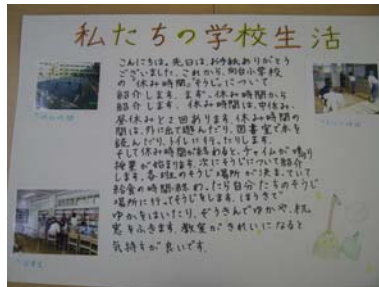 私たちの学校生活
こんにちは。先日は、お手紙ありがとう
ございました。これから、向台小学校
の"休み時間""そうじ"について
紹介します。まず、休み時間から
紹介します。休み時間は、中休み、
昼休みと2回あります。休み時間の
間は、外に出て遊んだり、図書室で本を
読んだり、トイレに行ったりします。
そして休み時間が終わると、チャイムが鳴り
授業が始まります。次にそうじについて紹介
します。各班のそうじ場所が決まっていて
給食の時間が終わったら自分たちのそうじ
場所に行ってそうじをします。ほうきで
ゆかをはいたり、ぞうきんでゆかや、机、
窓をふきます。教室がきれいになると
気持ちが良いです。